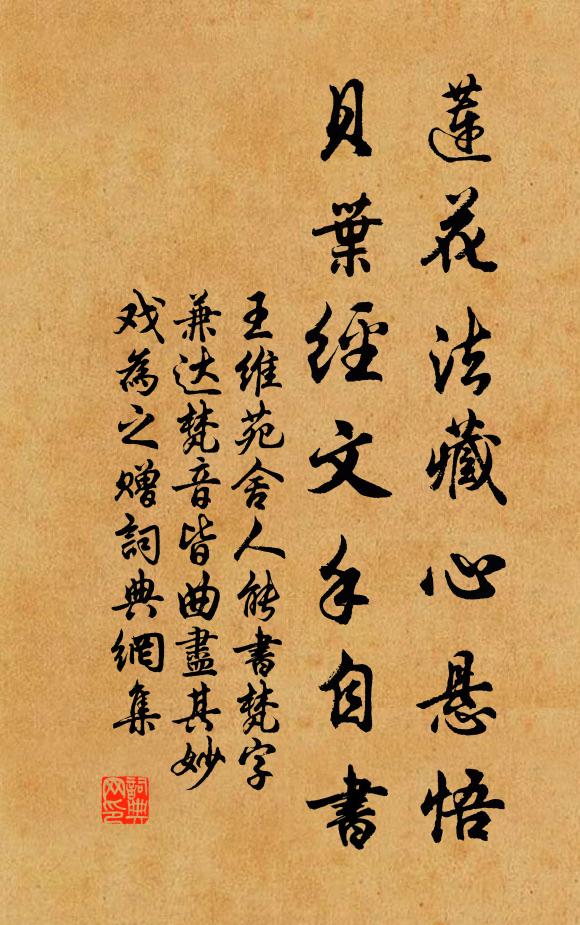 蓮花法藏心悬悟
貝葉經文手自書
王維苑舍人能書梵字
兼达梵音皆曲盡其妙
戏為之贈詞典網集
詞典
网印